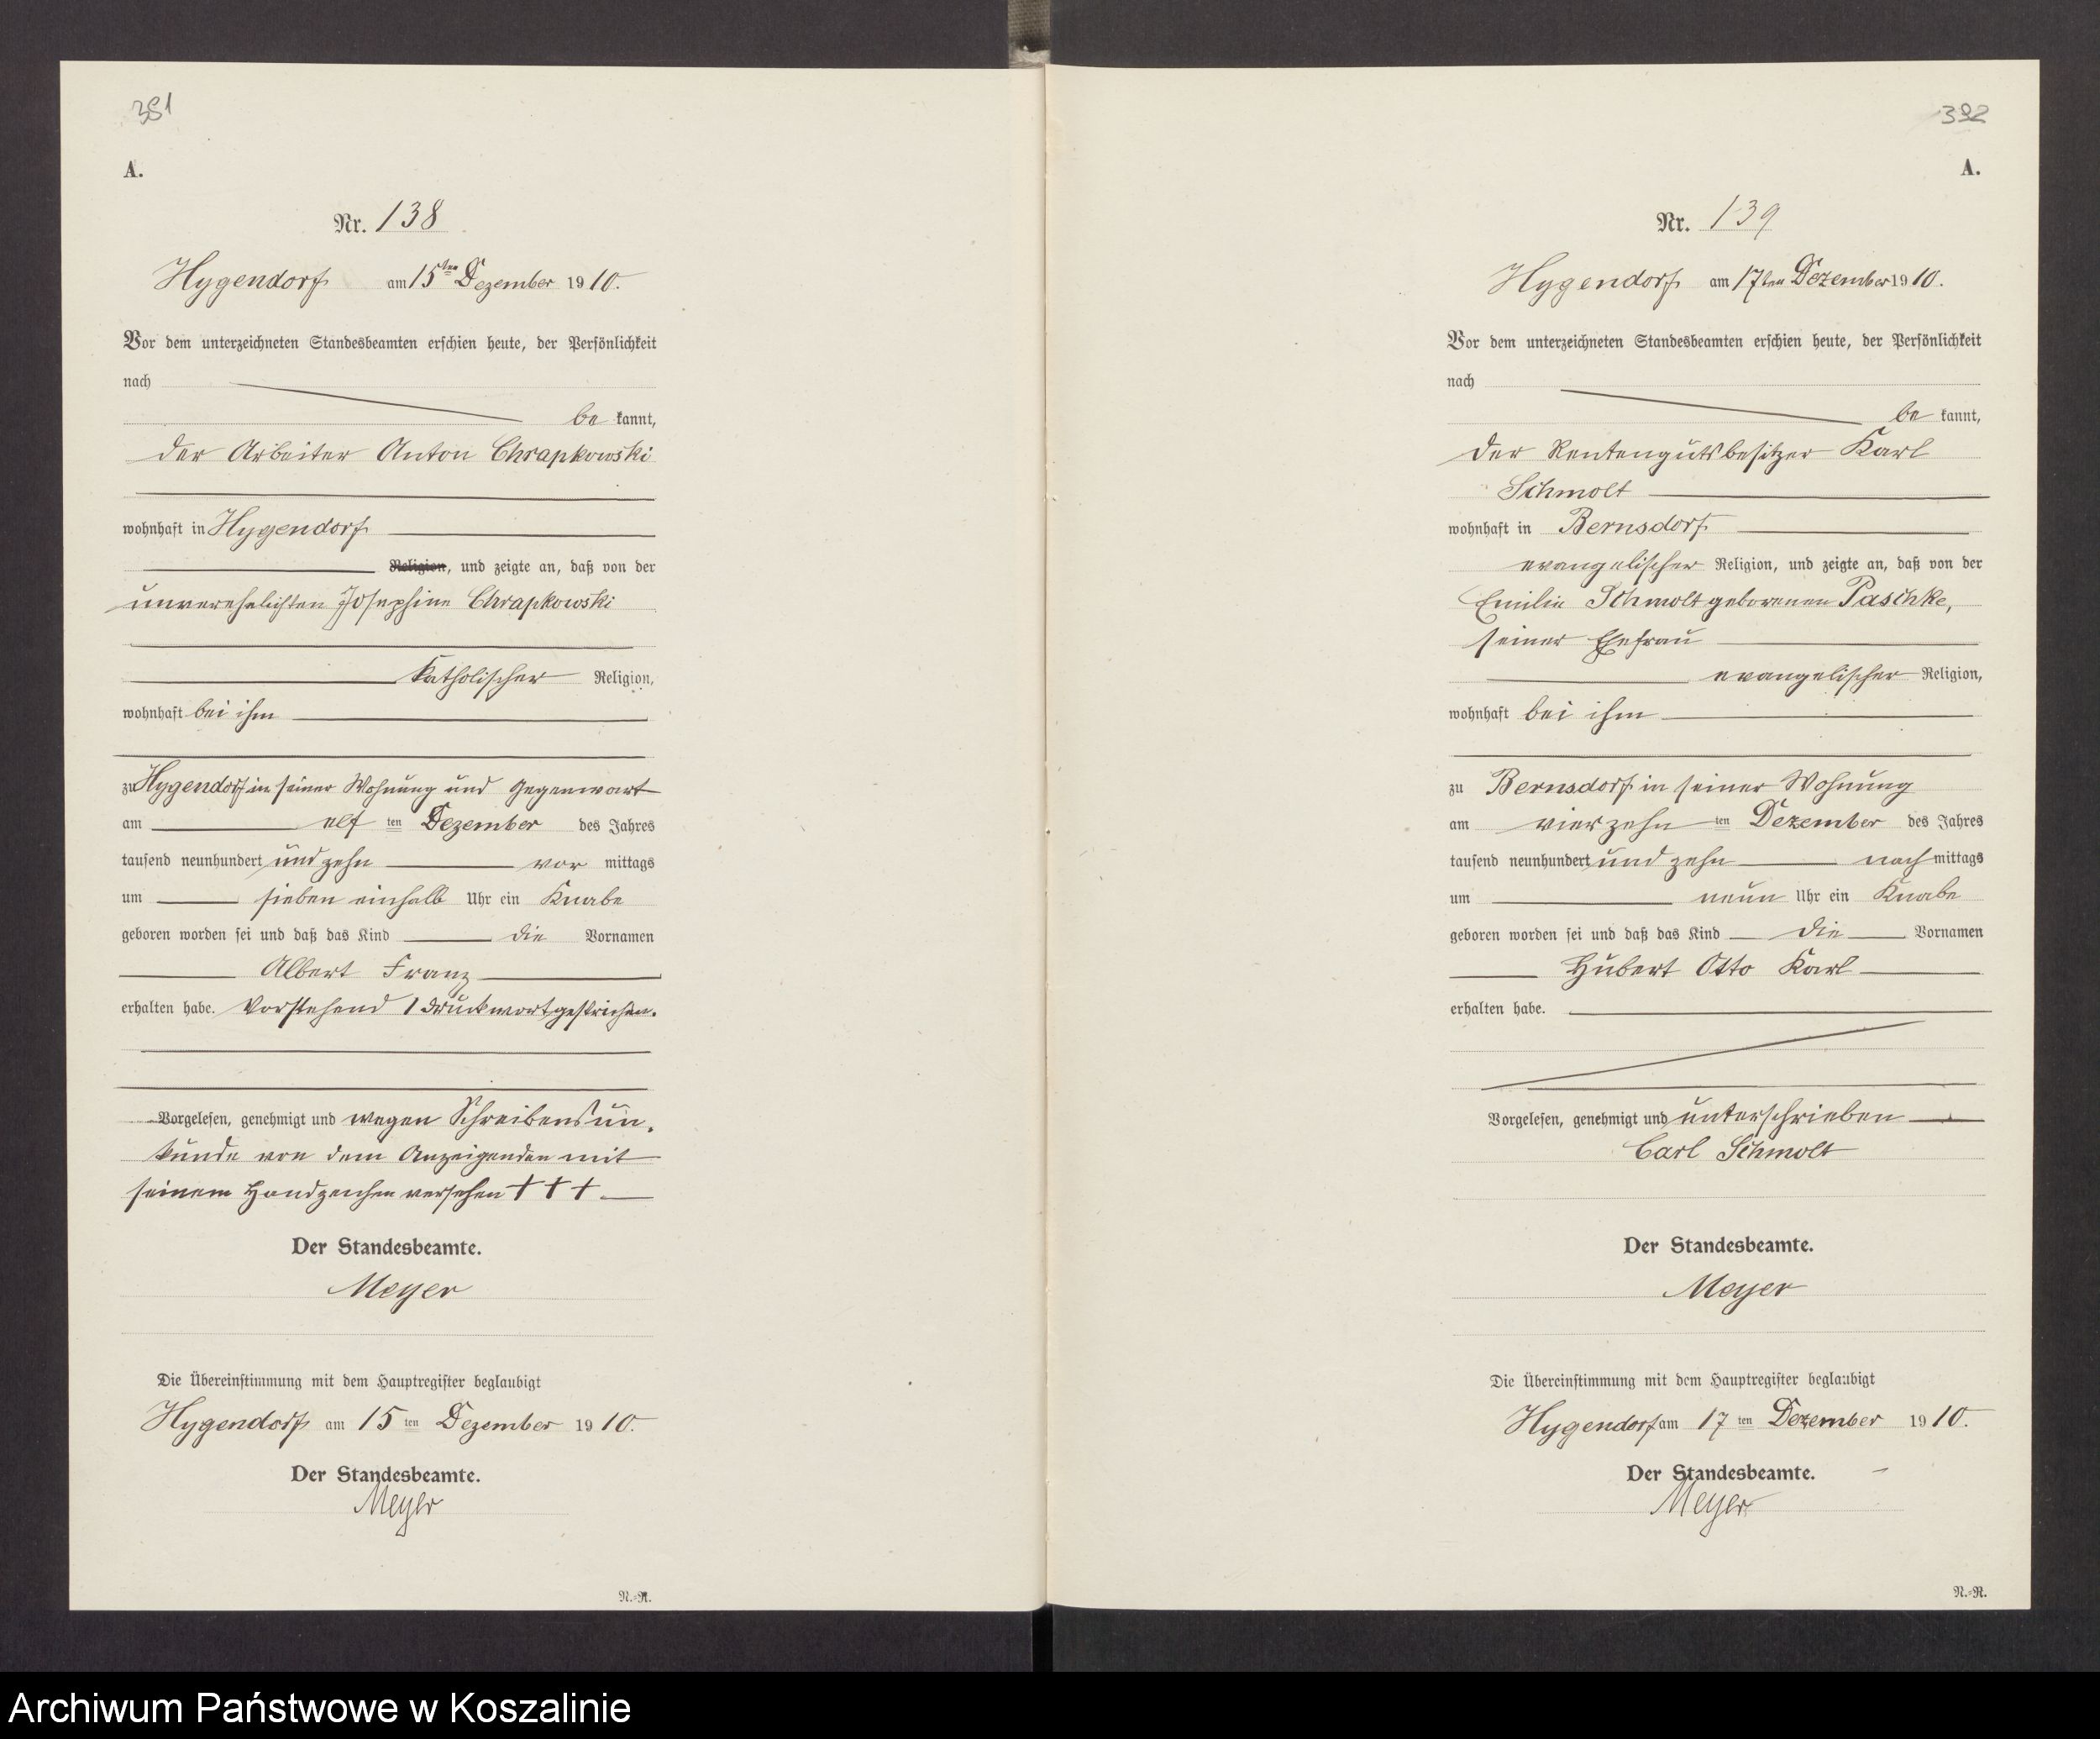 381
A.
Nr. 138
Hygendorf am 15ten Dezember 1910.
Vor dem unterzeichneten Standesbeamten erschien heute, der Persönlichkeit
nach
be kannt,
der Arbeiter Anton Chrapkowski
wohnhaft in Hygendorf
Religion, und zeigte an, daß von der
unverehelichten Josephine Chrapkowski
katholischer Religion,
wohnhaft bei ihm
zu Hygendorf in seiner Wohnung und Gegenwart
am elf ten Dezember des Jahres
tausend neunhundert und zehn vor mittags
um sieben einhalb Uhr ein Knabe
geboren worden sei und daß das Kind die Vornamen
Albert Franz
erhalten habe. Vorstehend 1 Druckwort gestrichen.
Vorgelesen, genehmigt und wegen Schreibensun-
kunde von dem Anzeigenden mit
seinem Handzeichen versehen † † †
Der Standesbeamte.
Meyer
Die Übereinstimmung mit dem Hauptregister beglaubigt
Hygendorf am 15 ten Dezember 1910.
Der Standesbeamte.
Meyer
N.-R.
382
A.
Nr. 139
Hygendorf am 17ten Dezember 1910.
Vor dem unterzeichneten Standesbeamten erschien heute, der Persönlichkeit
nach
be kannt,
der Rentengutsbesitzer Karl
Schmolt
wohnhaft in Bernsdorf
evangelischer Religion, und zeigte an, daß von der
Emilie Schmolt geborenen Paschke,
seiner Ehefrau
evangelischer Religion,
wohnhaft bei ihm
zu Bernsdorf in seiner Wohnung
am vierzehn ten Dezember des Jahres
tausend neunhundert und zehn nach mittags
um neun Uhr ein Knabe
geboren worden sei und daß das Kind die Vornamen
Hubert Otto Karl
erhalten habe.
Vorgelesen, genehmigt und unterschrieben
Carl Schmolt
Der Standesbeamte.
Meyer
Die Übereinstimmung mit dem Hauptregister beglaubigt
Hygendorf am 17 ten Dezember 1910.
Der Standesbeamte.
Meyer
N.-R.
Archiwum Państwowe w Koszalinie